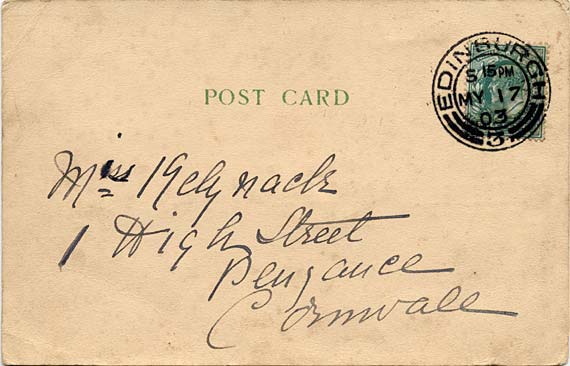 EDINBURGH
5 15 PM
MY 17
03
5
POST CARD
Miss Kelynack
1 High Street
Penzance
Cornwall